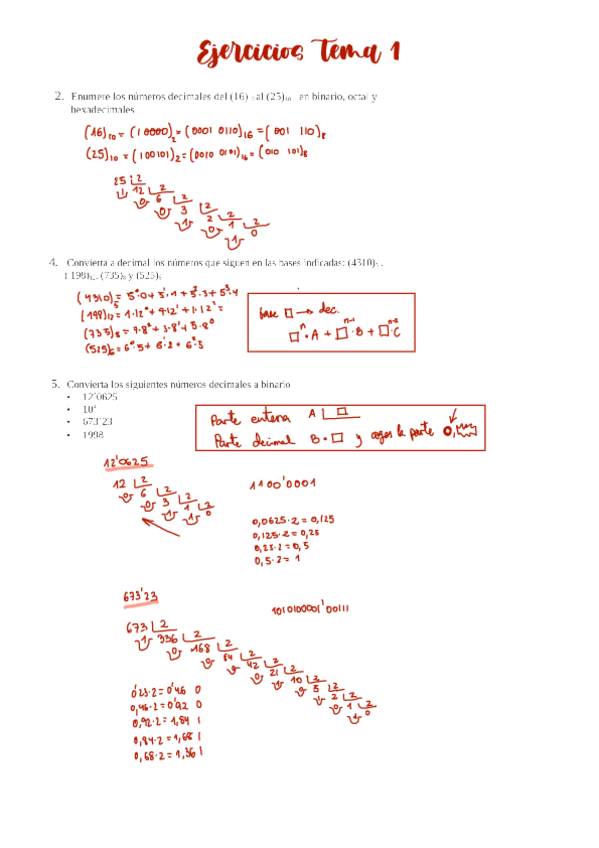 Ejercicios Tema 1
2. Enumere los números decimales del (16) al (25)₁₀ en binario, octal y
hexadecimales
(16)₁₀ = (10000)₂ = (0001 0110)₁₆ = (001 110)₈
(25)₁₀ = (100101)₂ = (0010 0101)₁₆ = (010 101)₈
25 2
1 12 2
0 6 2
0 3 2
1 2 2
0 1 2
1 0
4. Convierta a decimal los números que siguen en las bases indicadas: (4310)₅,
(198)₁₂, (735)₈ y (525)₆
(4310)₅ = 5⁰·0 + 5¹·1 + 5²·3 + 5³·4
(198)₁₂ = 1·12⁰ + 9·12¹ + 1·12² =
(735)₈ = 7·8² + 3·8¹ + 5·8⁰
(515)₆ = 6⁰·5 + 6¹·2 + 6²·5
base □ → dec.
□ⁿ·A + □ⁿ⁻¹·B + □ⁿ⁻²·C
5. Convierta los siguientes números decimales a binario
• 12'0625
• 673'23
• 1998
Parte entera A □
Parte decimal B·□ y coges la parte 0,
12'0625
12 2
0 6 2
0 3 2
1 1 2
1 0
1100'0001
0,0625·2 = 0,125
0,125·2 = 0,25
0,25·2 = 0,5
0,5·2 = 1
673'23
1010100001'00111
673 2
1 336 2
0 168 2
0 84 2
0 42 2
0 21 2
1 10 2
0 5 2
1 2 2
0 1 2
1 0
0'23·2 = 0'46 0
0,46·2 = 0'92 0
0,92·2 = 1,84 1
0,84·2 = 1,68 1
0,68·2 = 1,36 1